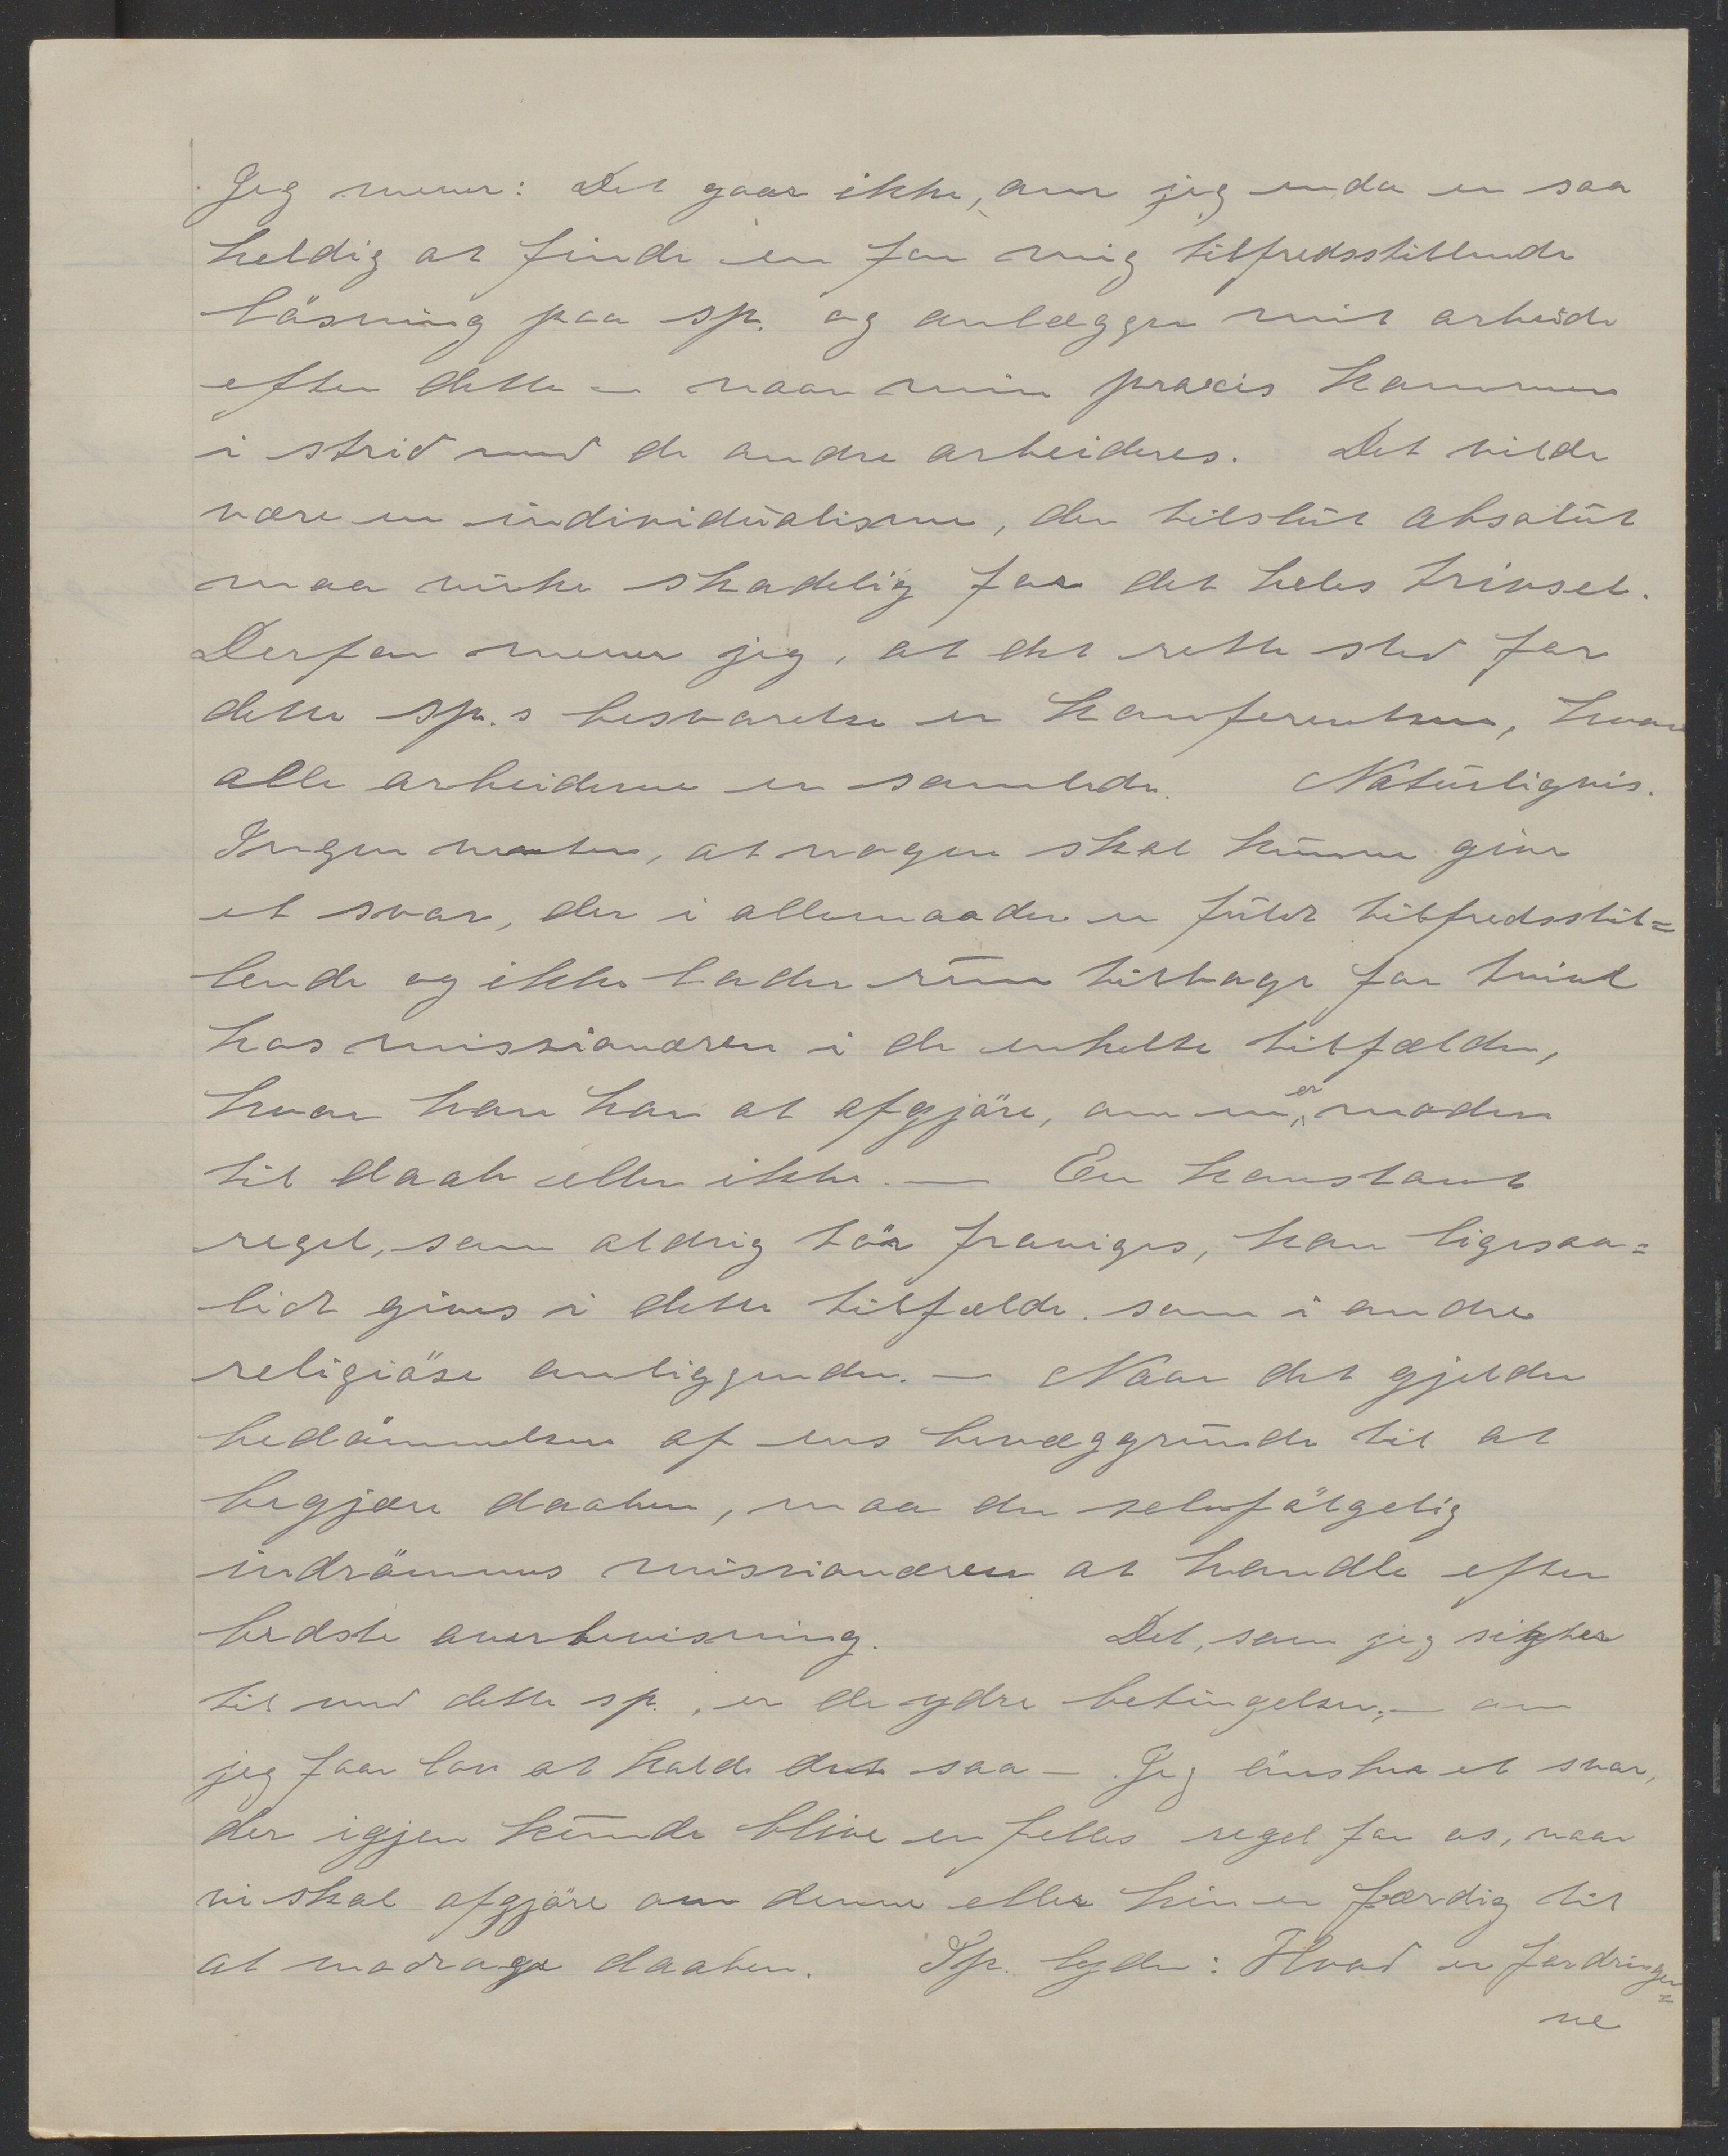 Jeg mener: Det gaar ikke, om jeg enda er saa
heldig at finde en for mig tilfredsstillende
läsning paa sp. og anlægger mit arbeide
efter dette — naar min praxis kommer
i strid med de andre arbeideres. Det vilde
være en individualisme, der tilslut absolut
maa virke skadelig for det heles trivsel.
Derfor mener jeg, at det rette sted for
dette sp.s besvarelse er konferentsen, hvor
alle arbeiderne er samlede. Naturligvis.
Ingen venter, at nogen skal kunne give
et svar, der i allemaader er fuldt tilfredsstil=
lende og ikke lader rum tilbage for tvivl
hos missionæren i de enkelte tilfælder,
hvor han har at afgjöre, om en er moden
til daab eller ikke. — En konstant
regel, som aldrig tör fraviges, kan ligesaa=
lidt gives i dette tilfælde som i andre
religiöse anliggender. — Naar det gjelder
bedömmelsen af ens bevæggrunde til at
begjære daaben, maa der selvfölgelig
indrömmes missionæren at handle efter
bedste overbevisning. Det, som jeg sigter
til med dette sp., er de ydre betingelser, — om
jeg faar lov at kalde det saa — Jeg önsker et svar,
der igjen kunde blive en felles regel for os, naar
vi skal afgjöre om denne eller hin er færdig til
at modtage daaben. Sp. lyder: Hvad er fordringer=
ne